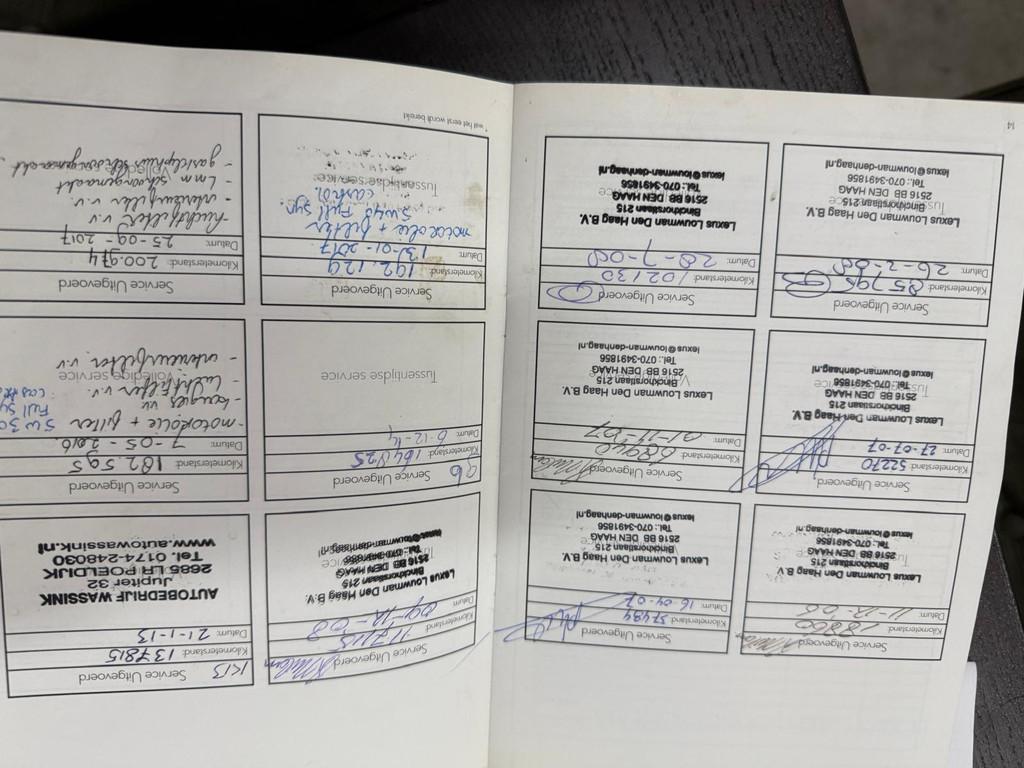 Service Uitgevoerd
Kilometerstand:
Datum:
Lexus Louwman Den Haag B.V.
Binckhorstlaan 215
2516 BB DEN HAAG
Tel.: 070-3491856
lexus@louwman-denhaag.nl
Service Uitgevoerd
Kilometerstand: 37484
Datum: 16-04-07
Lexus Louwman Den Haag B.V.
Binckhorstlaan 215
2516 BB DEN HAAG
Tel.: 070-3491856
lexus@louwman-denhaag.nl
Service Uitgevoerd
Kilometerstand: 52270
Datum: 27-07-07
Lexus Louwman Den Haag B.V.
Binckhorstlaan 215
2516 BB DEN HAAG
Tel.: 070-3491856
lexus@louwman-denhaag.nl
Service Uitgevoerd
Kilometerstand:
Datum:
Lexus Louwman Den Haag B.V.
Binckhorstlaan 215
2516 BB DEN HAAG
Tel.: 070-3491856
lexus@louwman-denhaag.nl
Service Uitgevoerd
Kilometerstand: 85795
Datum: 26-2-08
Lexus Louwman Den Haag B.V.
Binckhorstlaan 215
2516 BB DEN HAAG
Tel.: 070-3491856
lexus@louwman-denhaag.nl
Service Uitgevoerd
Kilometerstand: 102130
Datum: 28-7-08
Lexus Louwman Den Haag B.V.
Binckhorstlaan 215
2516 BB DEN HAAG
Tel.: 070-3491856
lexus@louwman-denhaag.nl
14
Service Uitgevoerd
Kilometerstand: 117115
Datum: 09-12-08
Lexus Louwman Den Haag B.V.
Binckhorstlaan 215
2516 BB DEN HAAG
Tel.: 070-3491856
lexus@louwman-denhaag.nl
Service Uitgevoerd
Kilometerstand: 137815
Datum: 21-1-13
AUTOBEDRIJF WASSINK
Jupiter 32
2685 LR POELDIJK
Tel. 0174-248030
www.autowassink.nl
Service Uitgevoerd
Kilometerstand: 164825
Datum: 6-12-14
Tussentijdse service
Service Uitgevoerd
Kilometerstand: 182.595
Datum: 7-05-2016.
- motorolie + filter
5w30
Full Sy
v.v
- luchtfilter v.v
Volledige service
- interieurfilter v.v
Service Uitgevoerd
Kilometerstand: 192.129
Datum: 13-01-2017
motorolie + filter
5w40 Full Syn
castrol
Tussentijdse service
Service Uitgevoerd
Kilometerstand: 200.974
Datum: 25-09-2017
- luchtfilter v.v
- interieurfilter v.v
- Lmm schoongemaakt
Volledige
- gasklephuis schoongemaakt
* wat het eerst wordt bereikt